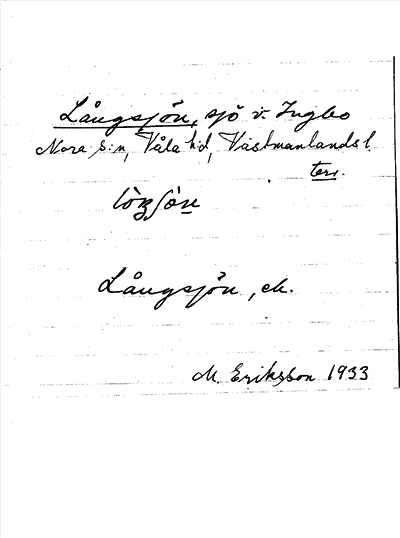 Långsjön, sjö v. Ingbo
Nora s:n, Våla hd, Västmanlands l.
terr.
Långsjön, ek.
M. Eriksson 1933